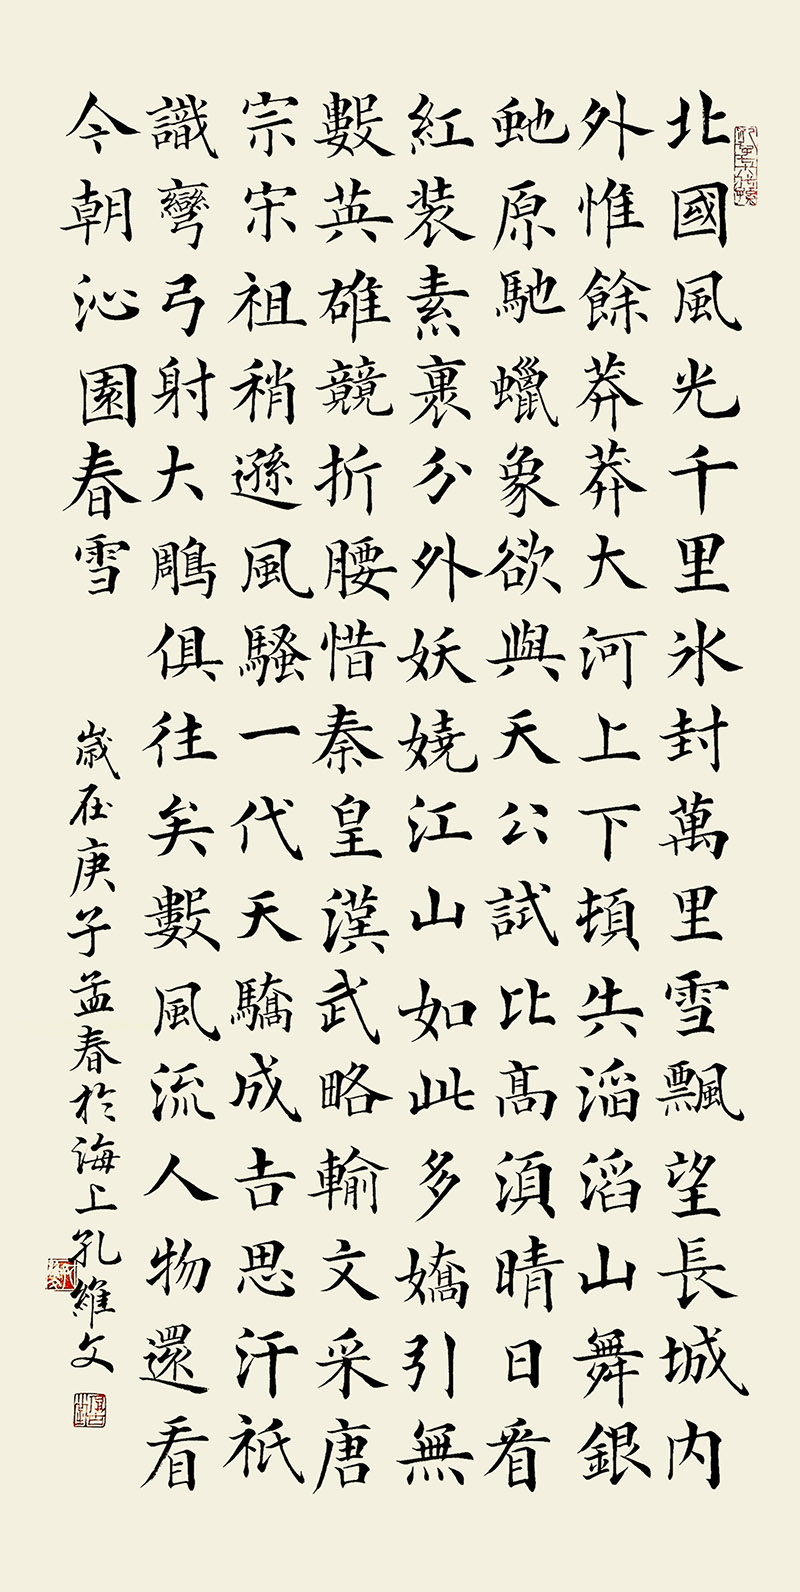 北國風光千里氷封萬里雪飄望長城内
外惟餘莽莽大河上下頓失滔滔山舞銀
虵原馳蠟象欲與天公試比髙須晴日看
紅装素裹分外妖嬈江山如此多嬌引無
數英雄競折腰惜秦皇漢武略輸文采唐
宗宋祖稍遜風騷一代天驕成吉思汗祇
識彎弓射大鵰俱往矣數風流人物還看
今朝沁園春雪
歲在庚子孟春於海上孔維文